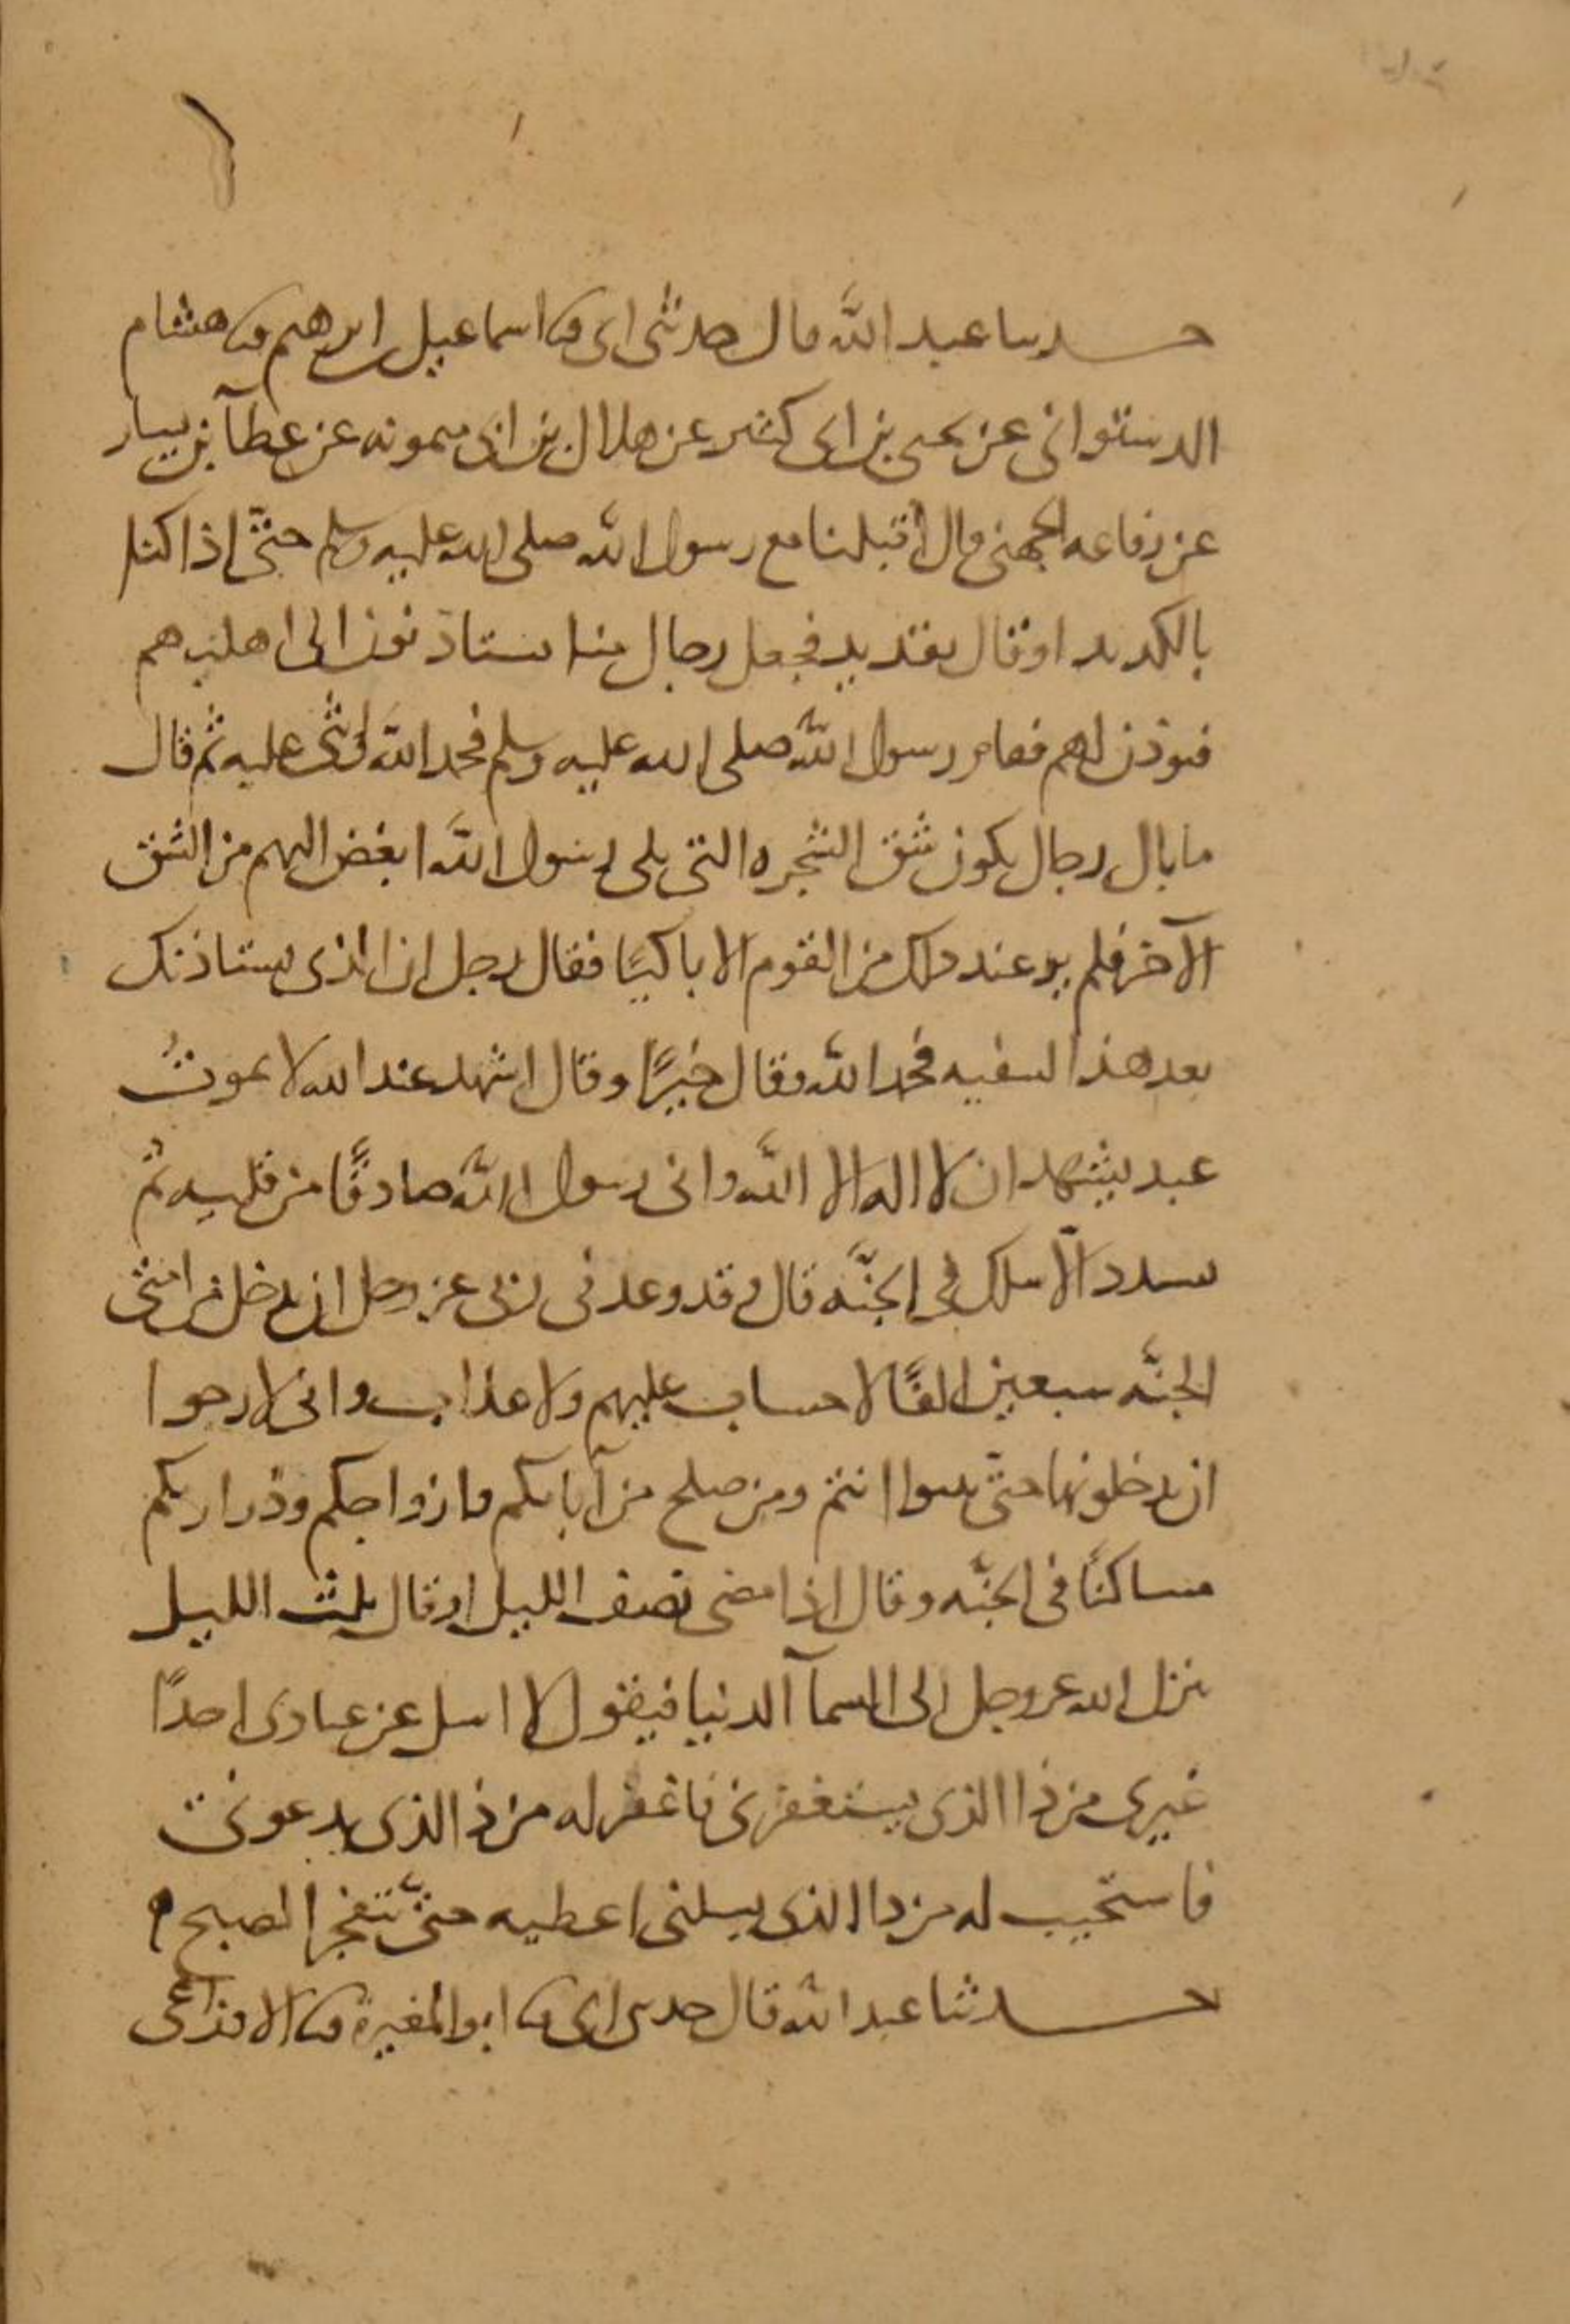 حدثنا عبد الله قال حدثنى ابى ثنا اسماعيل بن ابرهيم ثنا هشام
الدستوانى عن يحيى بن ابى كثير عن هلال بن ابى ميمونه عن عطآ بن يسار
عن رفاعه الجهنى قال اقبلنا مع رسول الله صلى الله عليه وسلم حتى اذا كنا
بالكديد او قال بقديد فجعل رجال منا يستاذنون الى اهليهم
فيوذن لهم فقام رسول الله صلى الله عليه وسلم فحمد الله واثنى عليه ثم قال
ما بال رجال يكون شق الشجره التى يلى رسول الله ابغض اليهم من الشق
الآخر فلم ير عند ذلك من القوم الا باكيًا فقال رجل ان الذى يستاذنك
بعد هذا لسفيه فحمد الله وقال خيرًا وقال اشهد عند الله لا يموتُ
عبد يشهد ان لا اله الا الله وانى رسول الله صادقًا من قلبه ثم
يسدد الّا سلك فى الجنّه قال وقد وعدنى ربى عز وجل ان يدخل من امتى
الجنّه سبعين الفًا لا حساب عليهم ولا عذاب وانى لارجوا
ان يدخلونها حتّى تبووا انتم ومن صلح من آبائكم وازواجكم وذراريكم
مساكنًا فى الجنّه وقال اذا مضى نصف الليل او قال ثلث الليل
ينزل الله عز وجل الى السمآ الدنيا فيقول لا اسل عن عبادى احدًا
غيرى من ذا الذى يستغفرنى فاغفر له من ذا الذى يدعونى
فاستجيب له من ذا الذى يسلنى اعطيه حتّى تنفجر الصبح
حدثنا عبد الله قال حدثنى ابى ثنا ابو المغيرة ثنا الاوزاعى